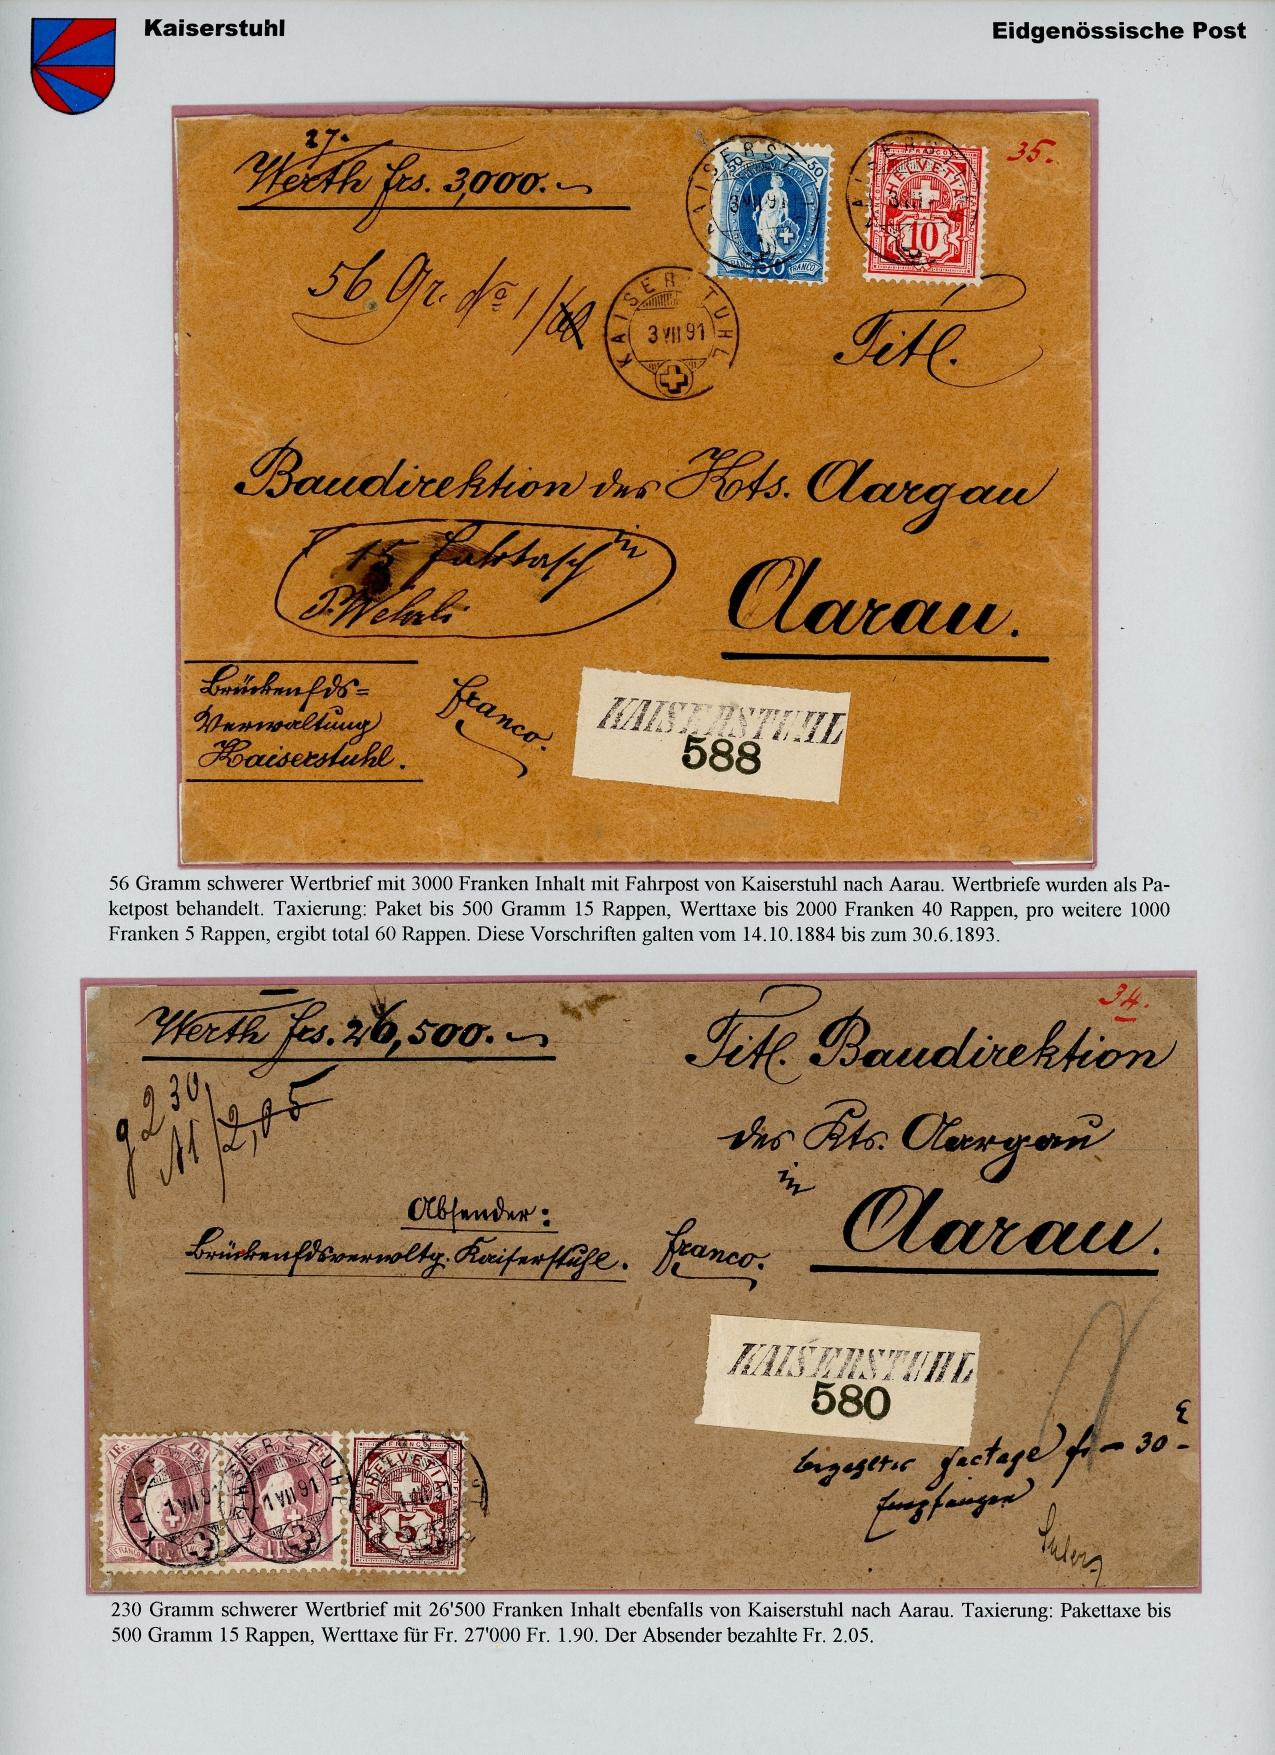 Kaiserstuhl
Eidgenössische Post
27.
Werth frs. 3,000.-
35.
50 50
50
FRANCO
KAISERSTUHL
3 VII 91
FRANCO
HELVETIA
10
KAISERSTUHL
56 Gr. No 1/60
KAISERSTUHL
3 VII 91
Titl.
Baudirektion des Kts. Aargau
in
15
P. Wehrli
Aarau.
Brückenfds=
Verwaltung
Kaiserstuhl.
franco.
KAISERSTUHL
588
56 Gramm schwerer Wertbrief mit 3000 Franken Inhalt mit Fahrpost von Kaiserstuhl nach Aarau. Wertbriefe wurden als Pa-
ketpost behandelt. Taxierung: Paket bis 500 Gramm 15 Rappen, Werttaxe bis 2000 Franken 40 Rappen, pro weitere 1000
Franken 5 Rappen, ergibt total 60 Rappen. Diese Vorschriften galten vom 14.10.1884 bis zum 30.6.1893.
34.
Werth frs. 26,500.-
Titl. Baudirektion
g 230
N1 / 2,05
des Kts. Aargau
in
Absender:
Aarau.
Brückenfdsverwaltg. Kaiserstuhl.
franco.
KAISERSTUHL
580
bezahlte factage fr - 30 -
Empfangen
Suter
1 FR.
KAISERSTUHL
1 VII 91
1 FR.
KAISERSTUHL
1 VII 91
FRANCO
HELVETIA
5
KAISERSTUHL
1 VII 91
230 Gramm schwerer Wertbrief mit 26'500 Franken Inhalt ebenfalls von Kaiserstuhl nach Aarau. Taxierung: Pakettaxe bis
500 Gramm 15 Rappen, Werttaxe für Fr. 27'000 Fr. 1.90. Der Absender bezahlte Fr. 2.05.